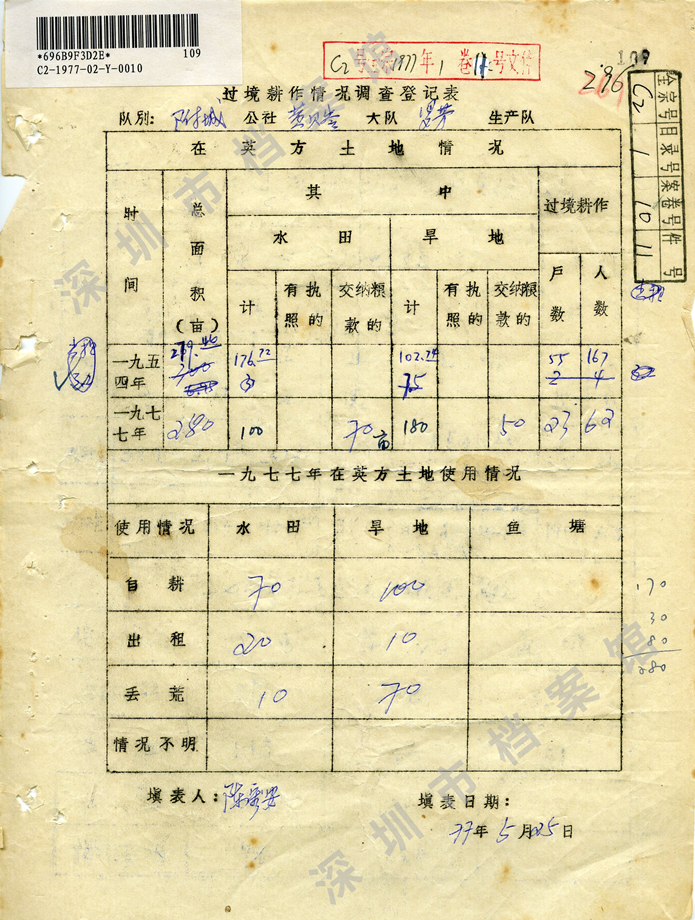 *696B9F3D2E* 109
C2-1977-02-Y-0010
109
C2号 1977年1卷11号文件
296
全宗号 目录号 案卷号 件号
C2 1 10 11
过境耕作情况调查登记表
队别: 附城 公社 黄贝岭 大队 罗芳 生产队
在英方土地情况
时间 总面积(亩) 其中 过境耕作
水田 旱地 户数 人数
计 有执照的 交纳粮款的 计 有执照的 交纳粮款的
一九五四年 279.46 176.72 102.74 55 167
300 75 2 4
一九七七年 280 100 70亩 180 50 23 62
一九七七年在英方土地使用情况
使用情况 水田 旱地 鱼塘
自耕 70 100
出租 20 10
丢荒 10 70
情况不明
170
30
80
280
填表人: 陈
填表日期:
77年5月25日
深圳市档案馆
深圳市档案馆